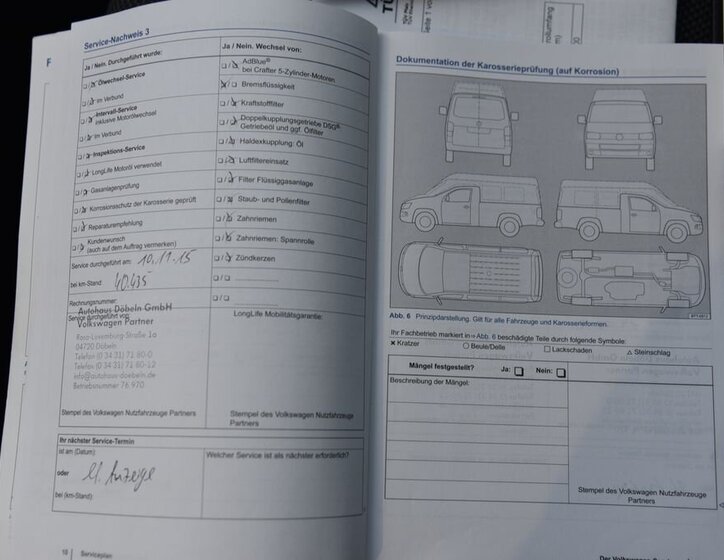 Service-Nachweis 3
Ja / Nein. Durchgeführt wurde:
Ölwechsel-Service
im Verbund
Intervall-Service
inklusive Motorölwechsel
im Verbund
Inspektions-Service
LongLife Motoröl verwendet
Gasanlagenprüfung
Korrosionsschutz der Karosserie geprüft
Reparaturempfehlung
Kundenwunsch
(auch auf dem Auftrag vermerken)
Service durchgeführt am: 10.11.15
bei km-Stand: 40.435
Rechnungsnummer:
Service durchgeführt von:
Autohaus Döbeln GmbH
Volkswagen Partner
Rosa-Luxemburg-Straße 1a
04720 Döbeln
Telefon (0 34 31) 71 80-0
Telefax (0 34 31) 71 80-12
info@autohaus-doebeln.de
Betriebsnummer 76 970
Stempel des Volkswagen Nutzfahrzeuge Partners
Ja / Nein. Wechsel von:
AdBlue®
bei Crafter 5-Zylinder-Motoren
Bremsflüssigkeit
Kraftstofffilter
Doppelkupplungsgetriebe DSG®
Getriebeöl und ggf. Ölfilter
Haldexkupplung: Öl
Luftfiltereinsatz
Filter Flüssiggasanlage
Staub- und Pollenfilter
Zahnriemen
Zahnriemen: Spannrolle
Zündkerzen
LongLife Mobilitätsgarantie:
Stempel des Volkswagen Nutzfahrzeuge
Partners
Ihr nächster Service-Termin
ist am (Datum):
oder
bei (km-Stand):
Anzeige
Welcher Service ist als nächster erforderlich?
Serviceplan
Dokumentation der Karosserieprüfung (auf Korrosion)
Abb. 6 Prinzipdarstellung. Gilt für alle Fahrzeuge und Karosserieformen.
Ihr Fachbetrieb markiert in ⇒ Abb. 6 beschädigte Teile durch folgende Symbole:
× Kratzer ○ Beule/Delle □ Lackschaden △ Steinschlag
Mängel festgestellt? Ja: □ Nein: □
Beschreibung der Mängel:
Stempel des Volkswagen Nutzfahrzeuge
Partners